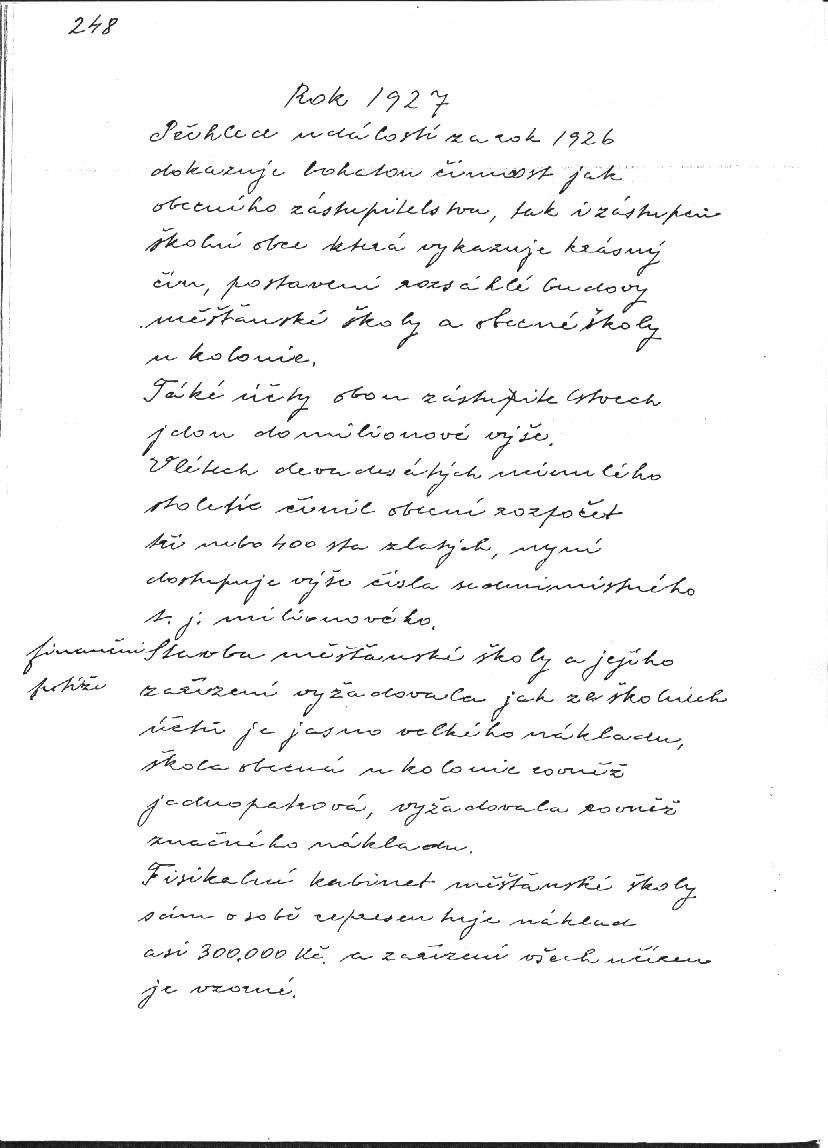 248
Rok 1927
Pěhled událostí za rok 1926
dokazuje bohatou činnost jak
obecního zástupitelstva, tak i zástupcu
školní obce která vykazuje krásný
čin, postavení rozsáhlé budovy
měšťanské školy a obecné školy
u kolonie.
Také účty obou zástupitelstvech
jdou do milionové výše.
V létech devadesátých minulého
století činil obecní rozpočet
tři nebo 400 sta zlatých, nyní
dostupuje výše čísla sedmimístného
t. j. milionového.
finanční Stavba měšťanské školy a jejího
potíže zařízení vyžadovala jak ze školních
účtů je jasno velkého nákladu,
škola obecná u kolonie rovněž
jednopatrová, vyžadovala rovněž
značného nákladu.
Fisikalní kabinet měšťanské školy
sám o sobě representuje náklad
asi 300.000 Kč. a zařízení všech učíren
je vzorné.